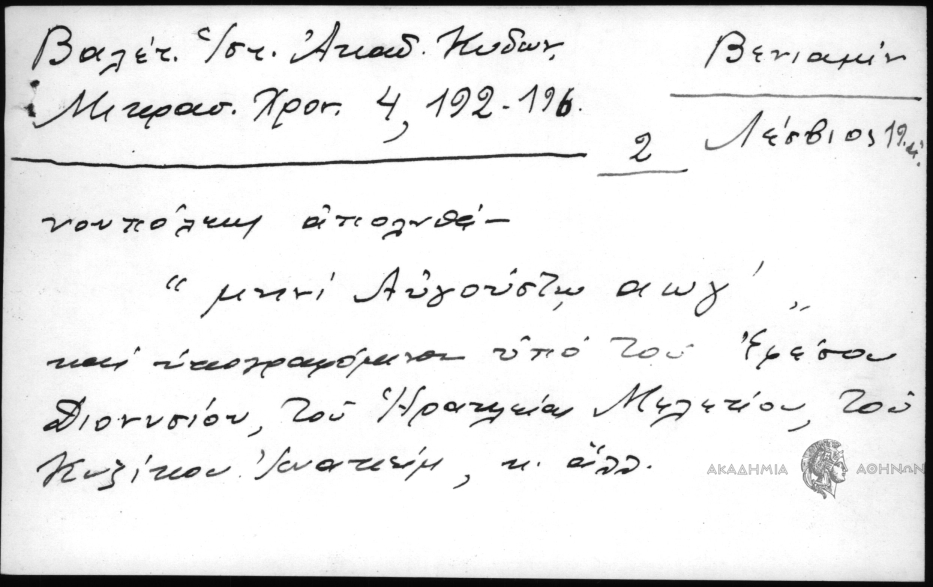 Βαλέτ. Ἱστ. Ἀκαδ. Κυδων.
Μικρασ. Χρον. 4, 192-196.
Βενιαμίν
Λέσβιος 19. αἰ.
2
νουπόλεως ἀπολυθέν
“ μηνί Αὐγούστῳ αωγ΄ „
καί ὑπογραφόμενον ὑπό τοῦ Ἐφέσου
Διονυσίου, τοῦ Ἡρακλείας Μελετίου, τοῦ
Κυζίκου Ἰωακείμ, κ. ἄλλ.
ΑΚΑΔΗΜΙΑ ΑΘΗΝΩΝ